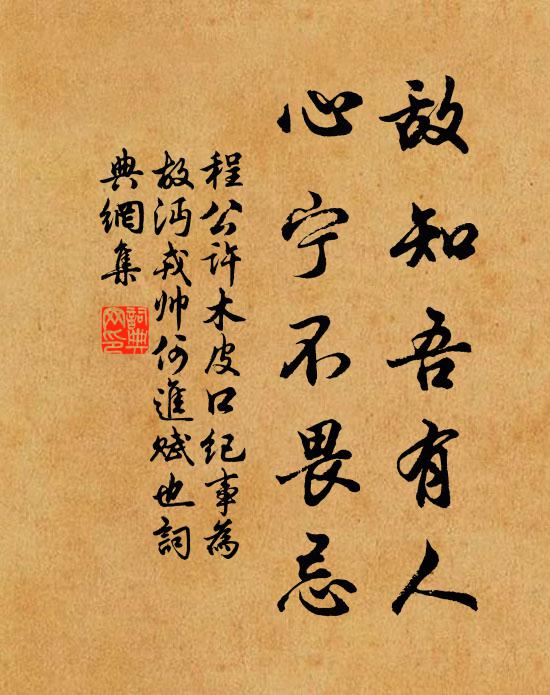 敌知吾有人
心宁不畏忌
程公许木皮口纪事为
故沔戎帅何进赋也词
典網集
詞典网印